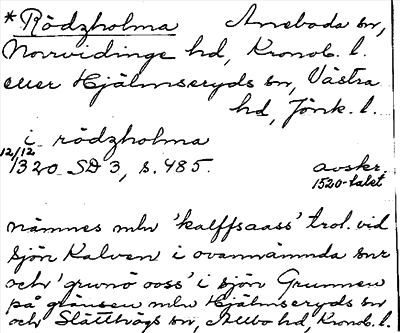 *Rödzholma Aneboda sn,
Norrvidinge hd, Kronob. l.
eller Hjälmseryds sn, Västra
hd, Jönk. l.
i rödzholma
12/12 1320 SD 3, s. 485. avskr.
1520-talet
nämnes mln 'kalffsaass' trol. vid
sjön Kalven i ovannämnda snr
och 'grwnö ooss' i sjön Grunnen
på gränsen mln Hjälmseryds sn
och Slätthögs sn, Allbo hd, Kronob. l.